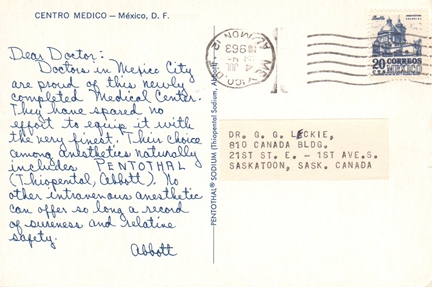 CENTRO MEDICO — México, D. F.
Dear Doctor:
Doctors in Mexico City
are proud of this newly
completed Medical Center.
They have spared no
effort to equip it with
the very finest. Their choice
among anesthetics naturally
includes PENTOTHAL
(Thiopental, Abbott). No
other intravenous anesthetic
can offer so long a record
of sureness and relative
safety.
Abbott
PENTOTHAL® SODIUM (Thiopental Sodium, Abbott)
MEXICO
1963
20 CORREOS
MEXICO
DR. G. G. LECKIE,
810 CANADA BLDG.
21ST ST. E. - 1ST AVE.S.
SASKATOON, SASK. CANADA